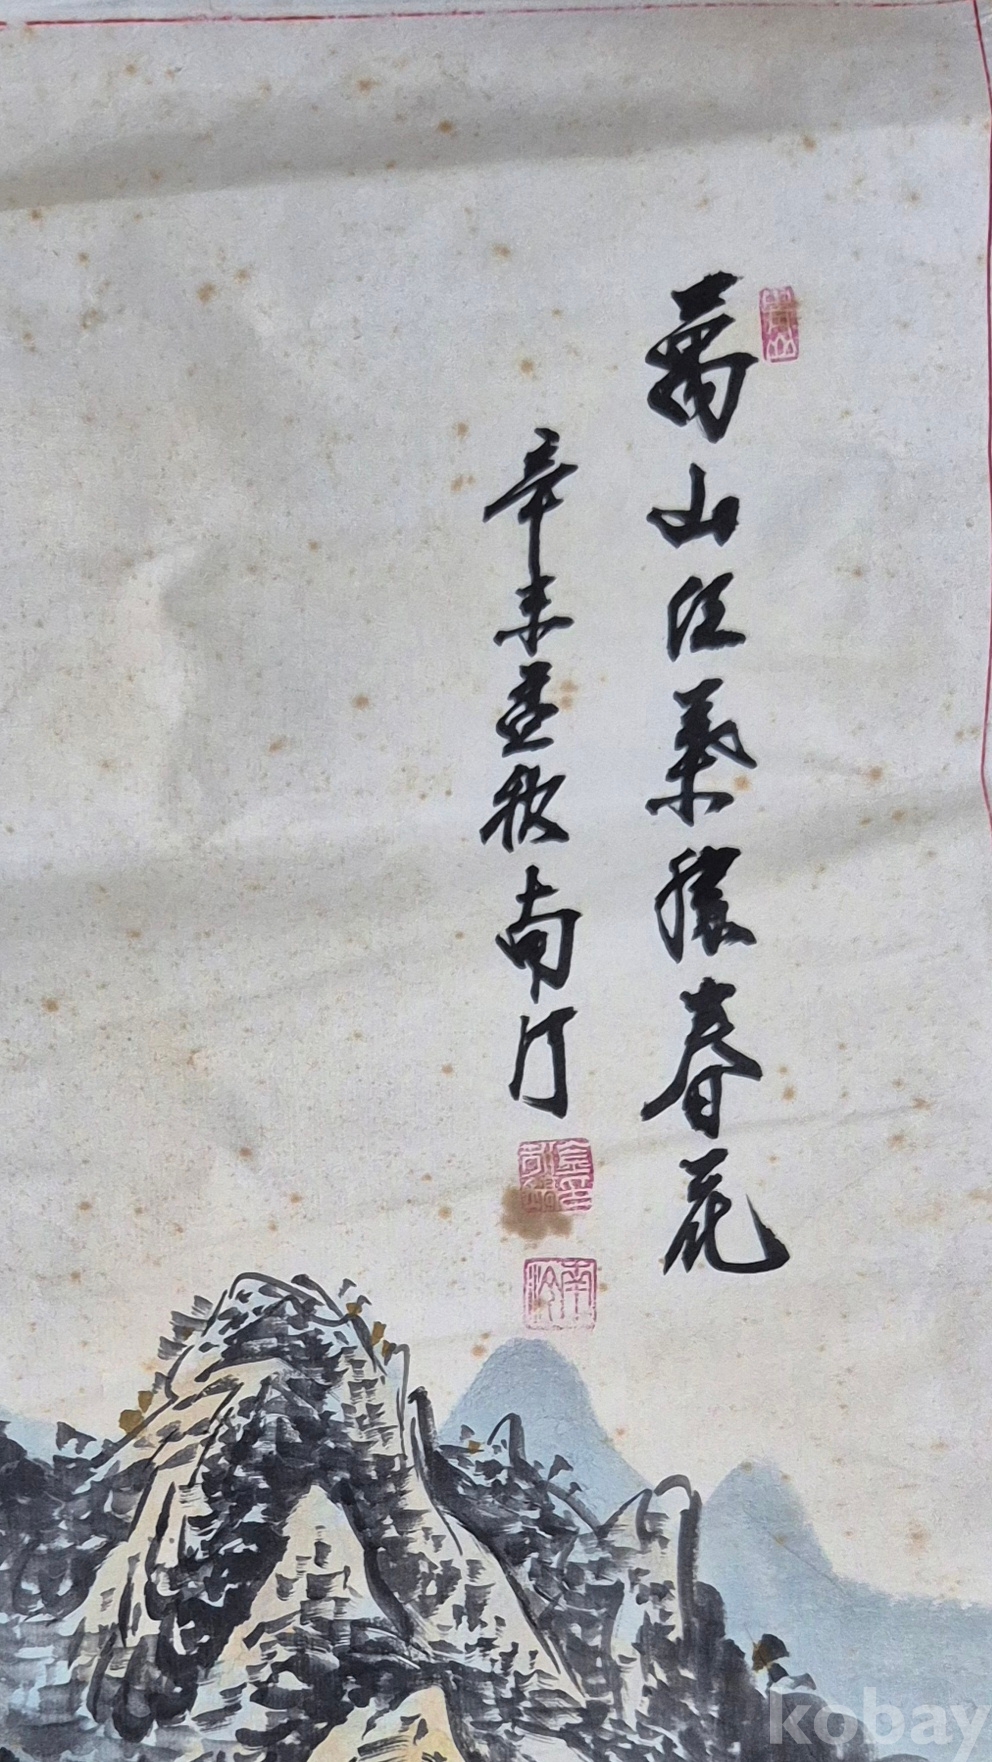 萬山紅葉勝春花
辛未孟秋南汀
kobay